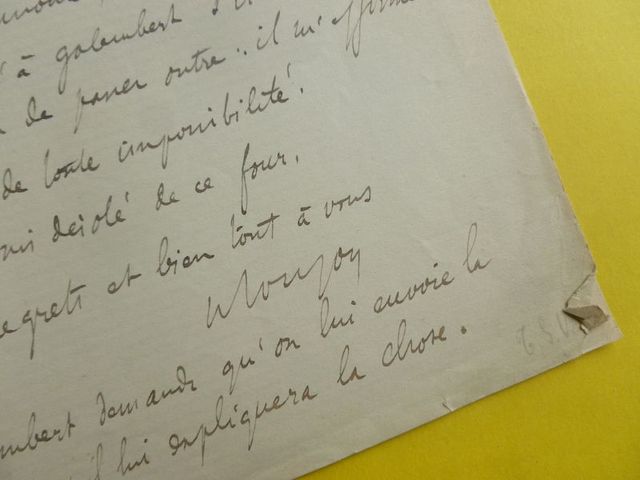 à galembert
de passer outre . il m'
de toute impossibilité.
désolé de ce four.
regrets et bien tout à vous
demande qu'on lui envoie la
lui expliquera la chose.